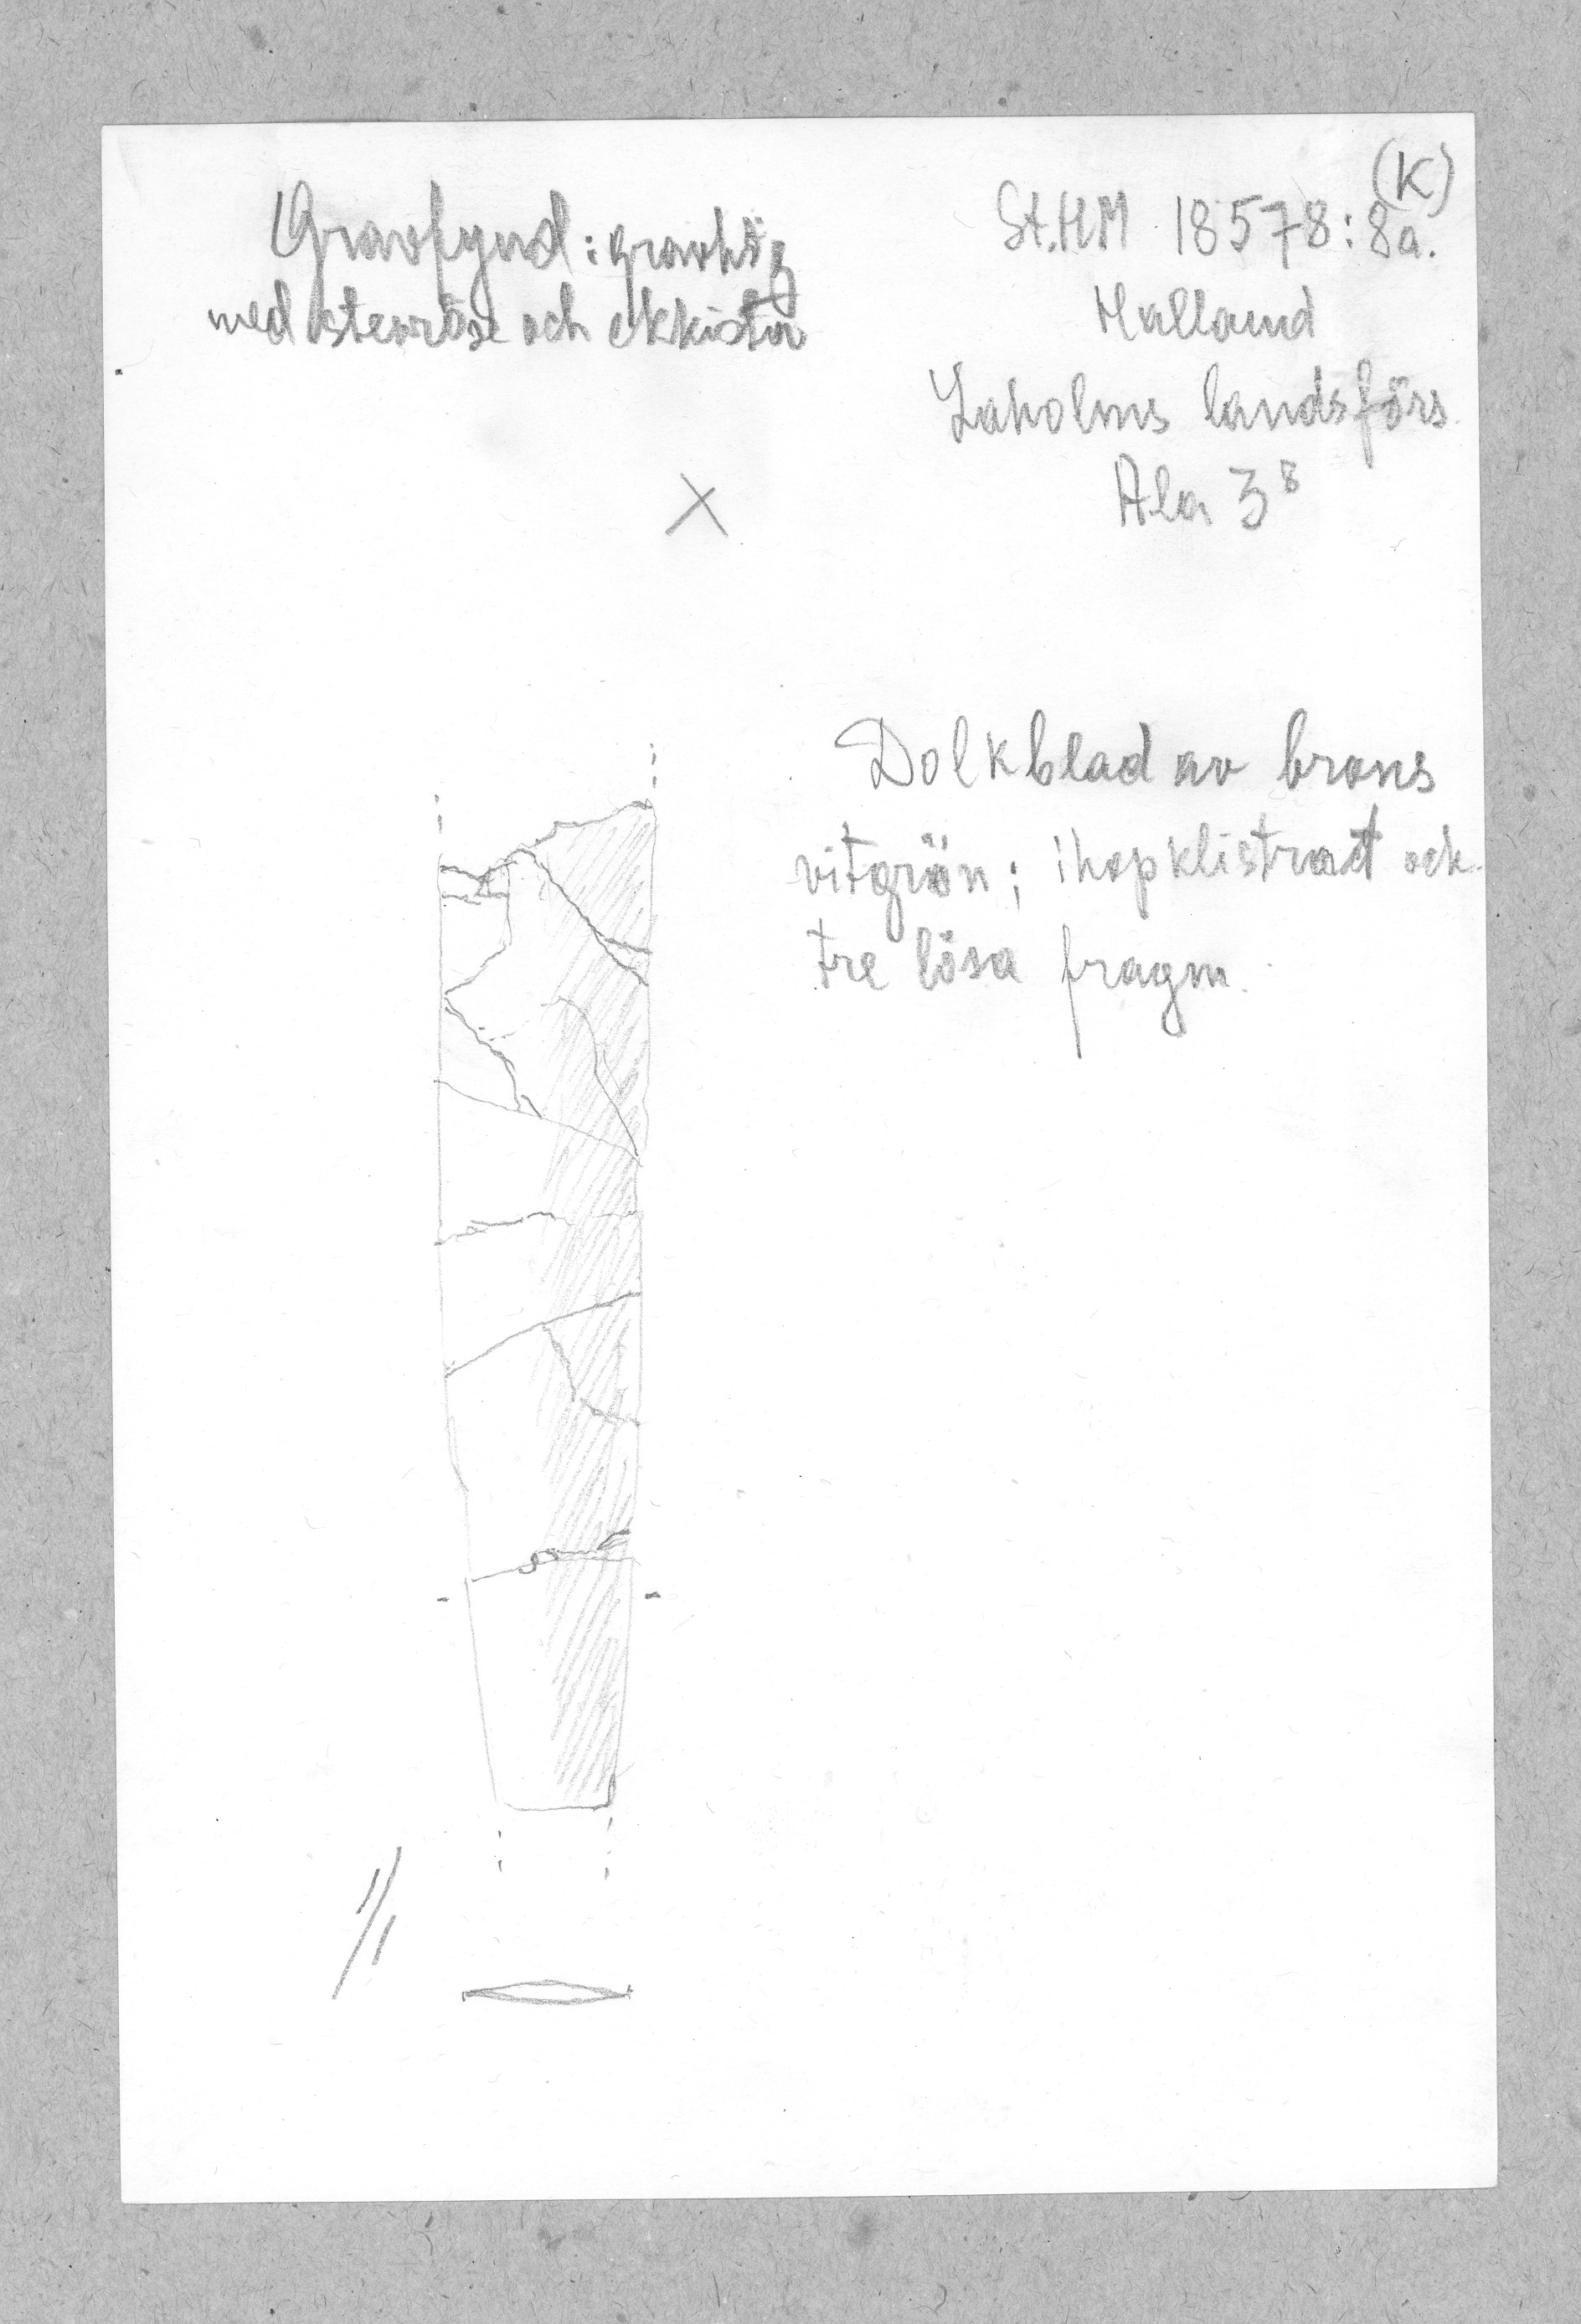 Gravfynd: gravhög
med stenröse och ekkista
(K)
St.HM 18578:8a.
Halland
Laholms landsförs.
Ala 3⁸
X
Dolkblad av brons
vitgrön; ihopklistrat och
tre lösa fragm.
1/1